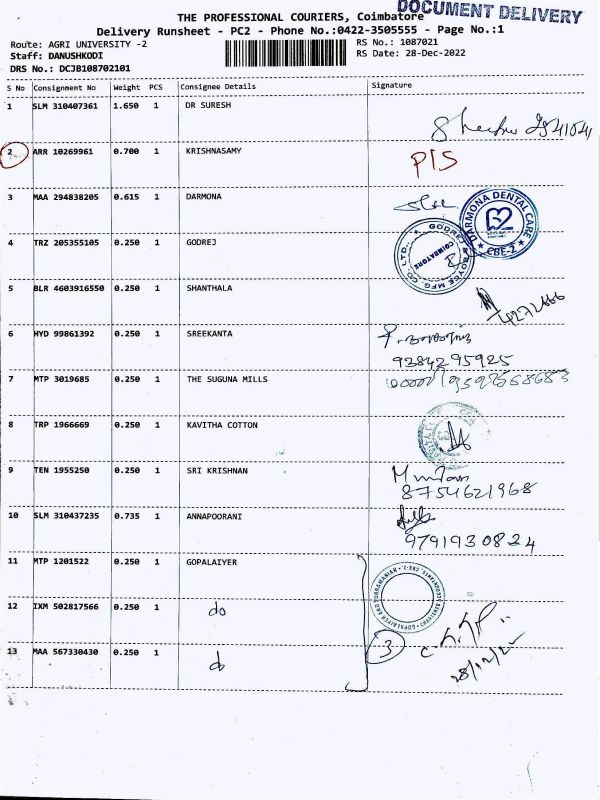 DOCUMENT DELIVERY
THE PROFESSIONAL COURIERS, Coimbatore
Delivery Runsheet - PC2 - Phone No.:0422-3505555 - Page No.:1
Route: AGRI UNIVERSITY -2
RS No.: 1087021
Staff: DANUSHKODI
RS Date: 28-Dec-2022
DRS No.: DCJB108702101
S No Consignment No Weight PCS Consignee Details Signature
1 SLM 310407361 1.650 1 DR SURESH
2 ARR 10269961 0.700 1 KRISHNASAMY PIS
3 MAA 294838205 0.615 1 DARMONA
DARMONA DENTAL CARE
CBE-2
4 TRZ 205355105 0.250 1 GODREJ
GODREJ & BOYCE MFG. CO. LTD.
COIMBATORE
5 BLR 4603916550 0.250 1 SHANTHALA
6 HYD 99861392 0.250 1 SREEKANTA
9384295925
7 MTP 3019685 0.250 1 THE SUGUNA MILLS
8 TRP 1966669 0.250 1 KAVITHA COTTON
9 TEN 1955250 0.250 1 SRI KRISHNAN
8754621968
10 SLM 310437235 0.735 1 ANNAPOORANI
9791930824
11 MTP 1201522 0.250 1 GOPALAIYER
GOPALAIYER AND SUBRAMANIAN
CHARTERED ACCOUNTANTS, CBE-2.
12 IXM 502817566 0.250 1 do
13 MAA 567330430 0.250 1 do
3
28/12/22